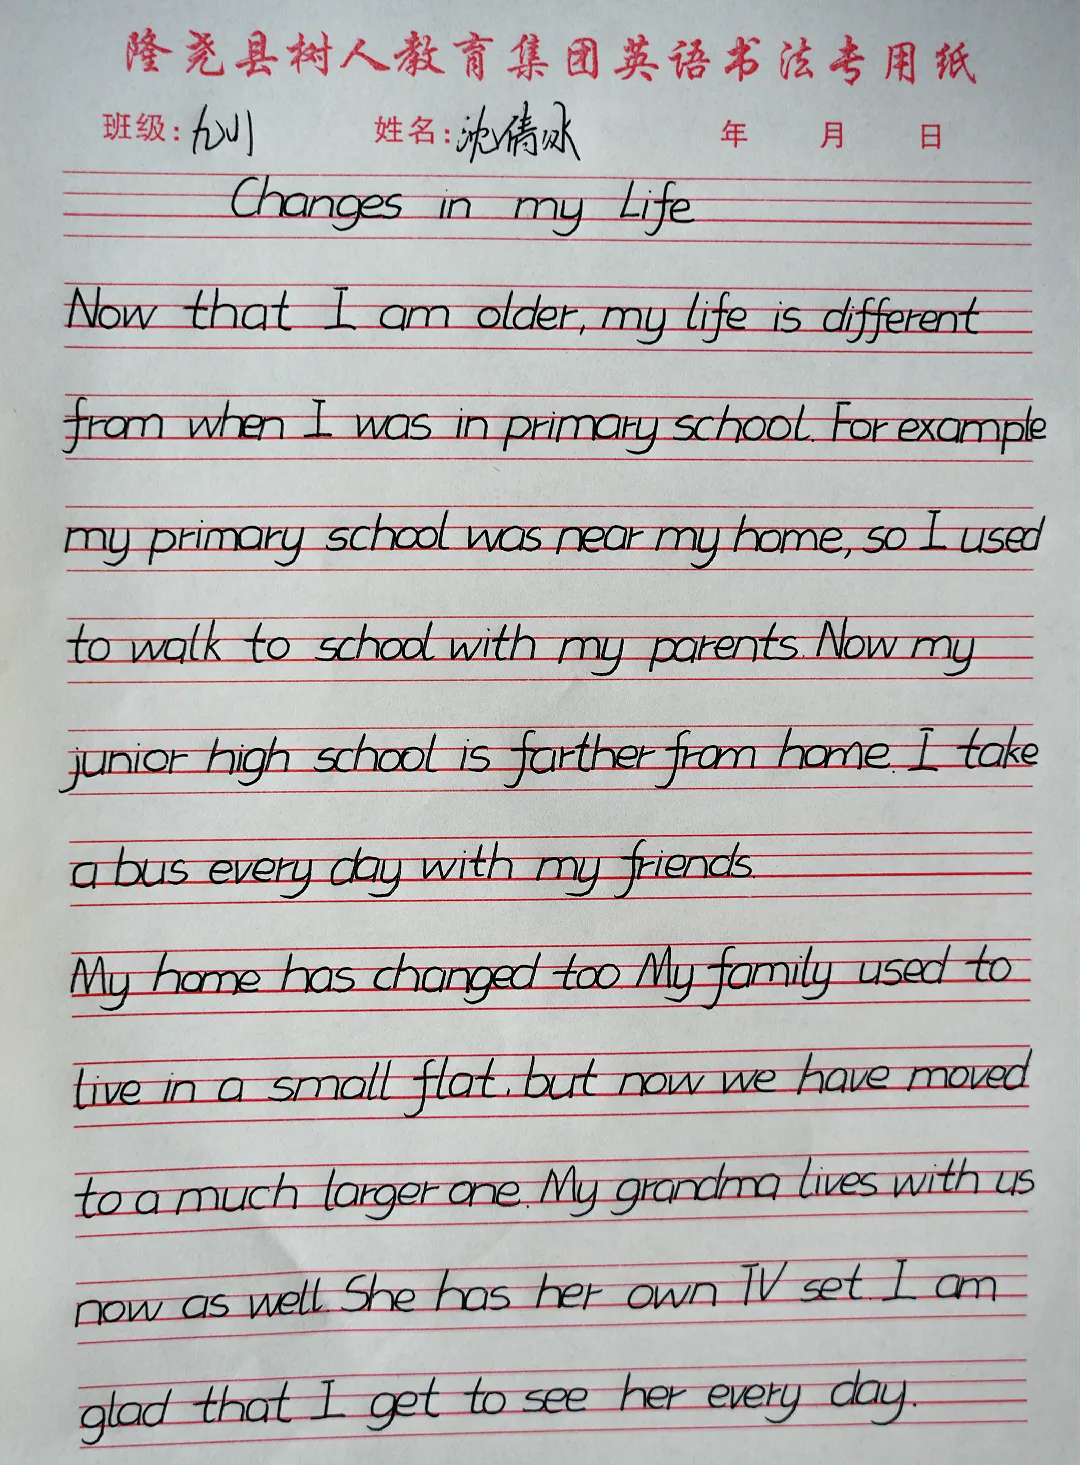 隆尧县树人教育集团英语书法专用纸
班级: 姓名:沈倩冰 年 月 日
Changes in my Life
Now that I am older, my life is different
from when I was in primary school. For example
my primary school was near my home, so I used
to walk to school with my parents. Now my
junior high school is farther from home. I take
a bus every day with my friends.
My home has changed too My family used to
live in a small flat. but now we have moved
to a much larger one. My grandma lives with us
now as well. She has her own TV set. I am
glad that I get to see her every day.